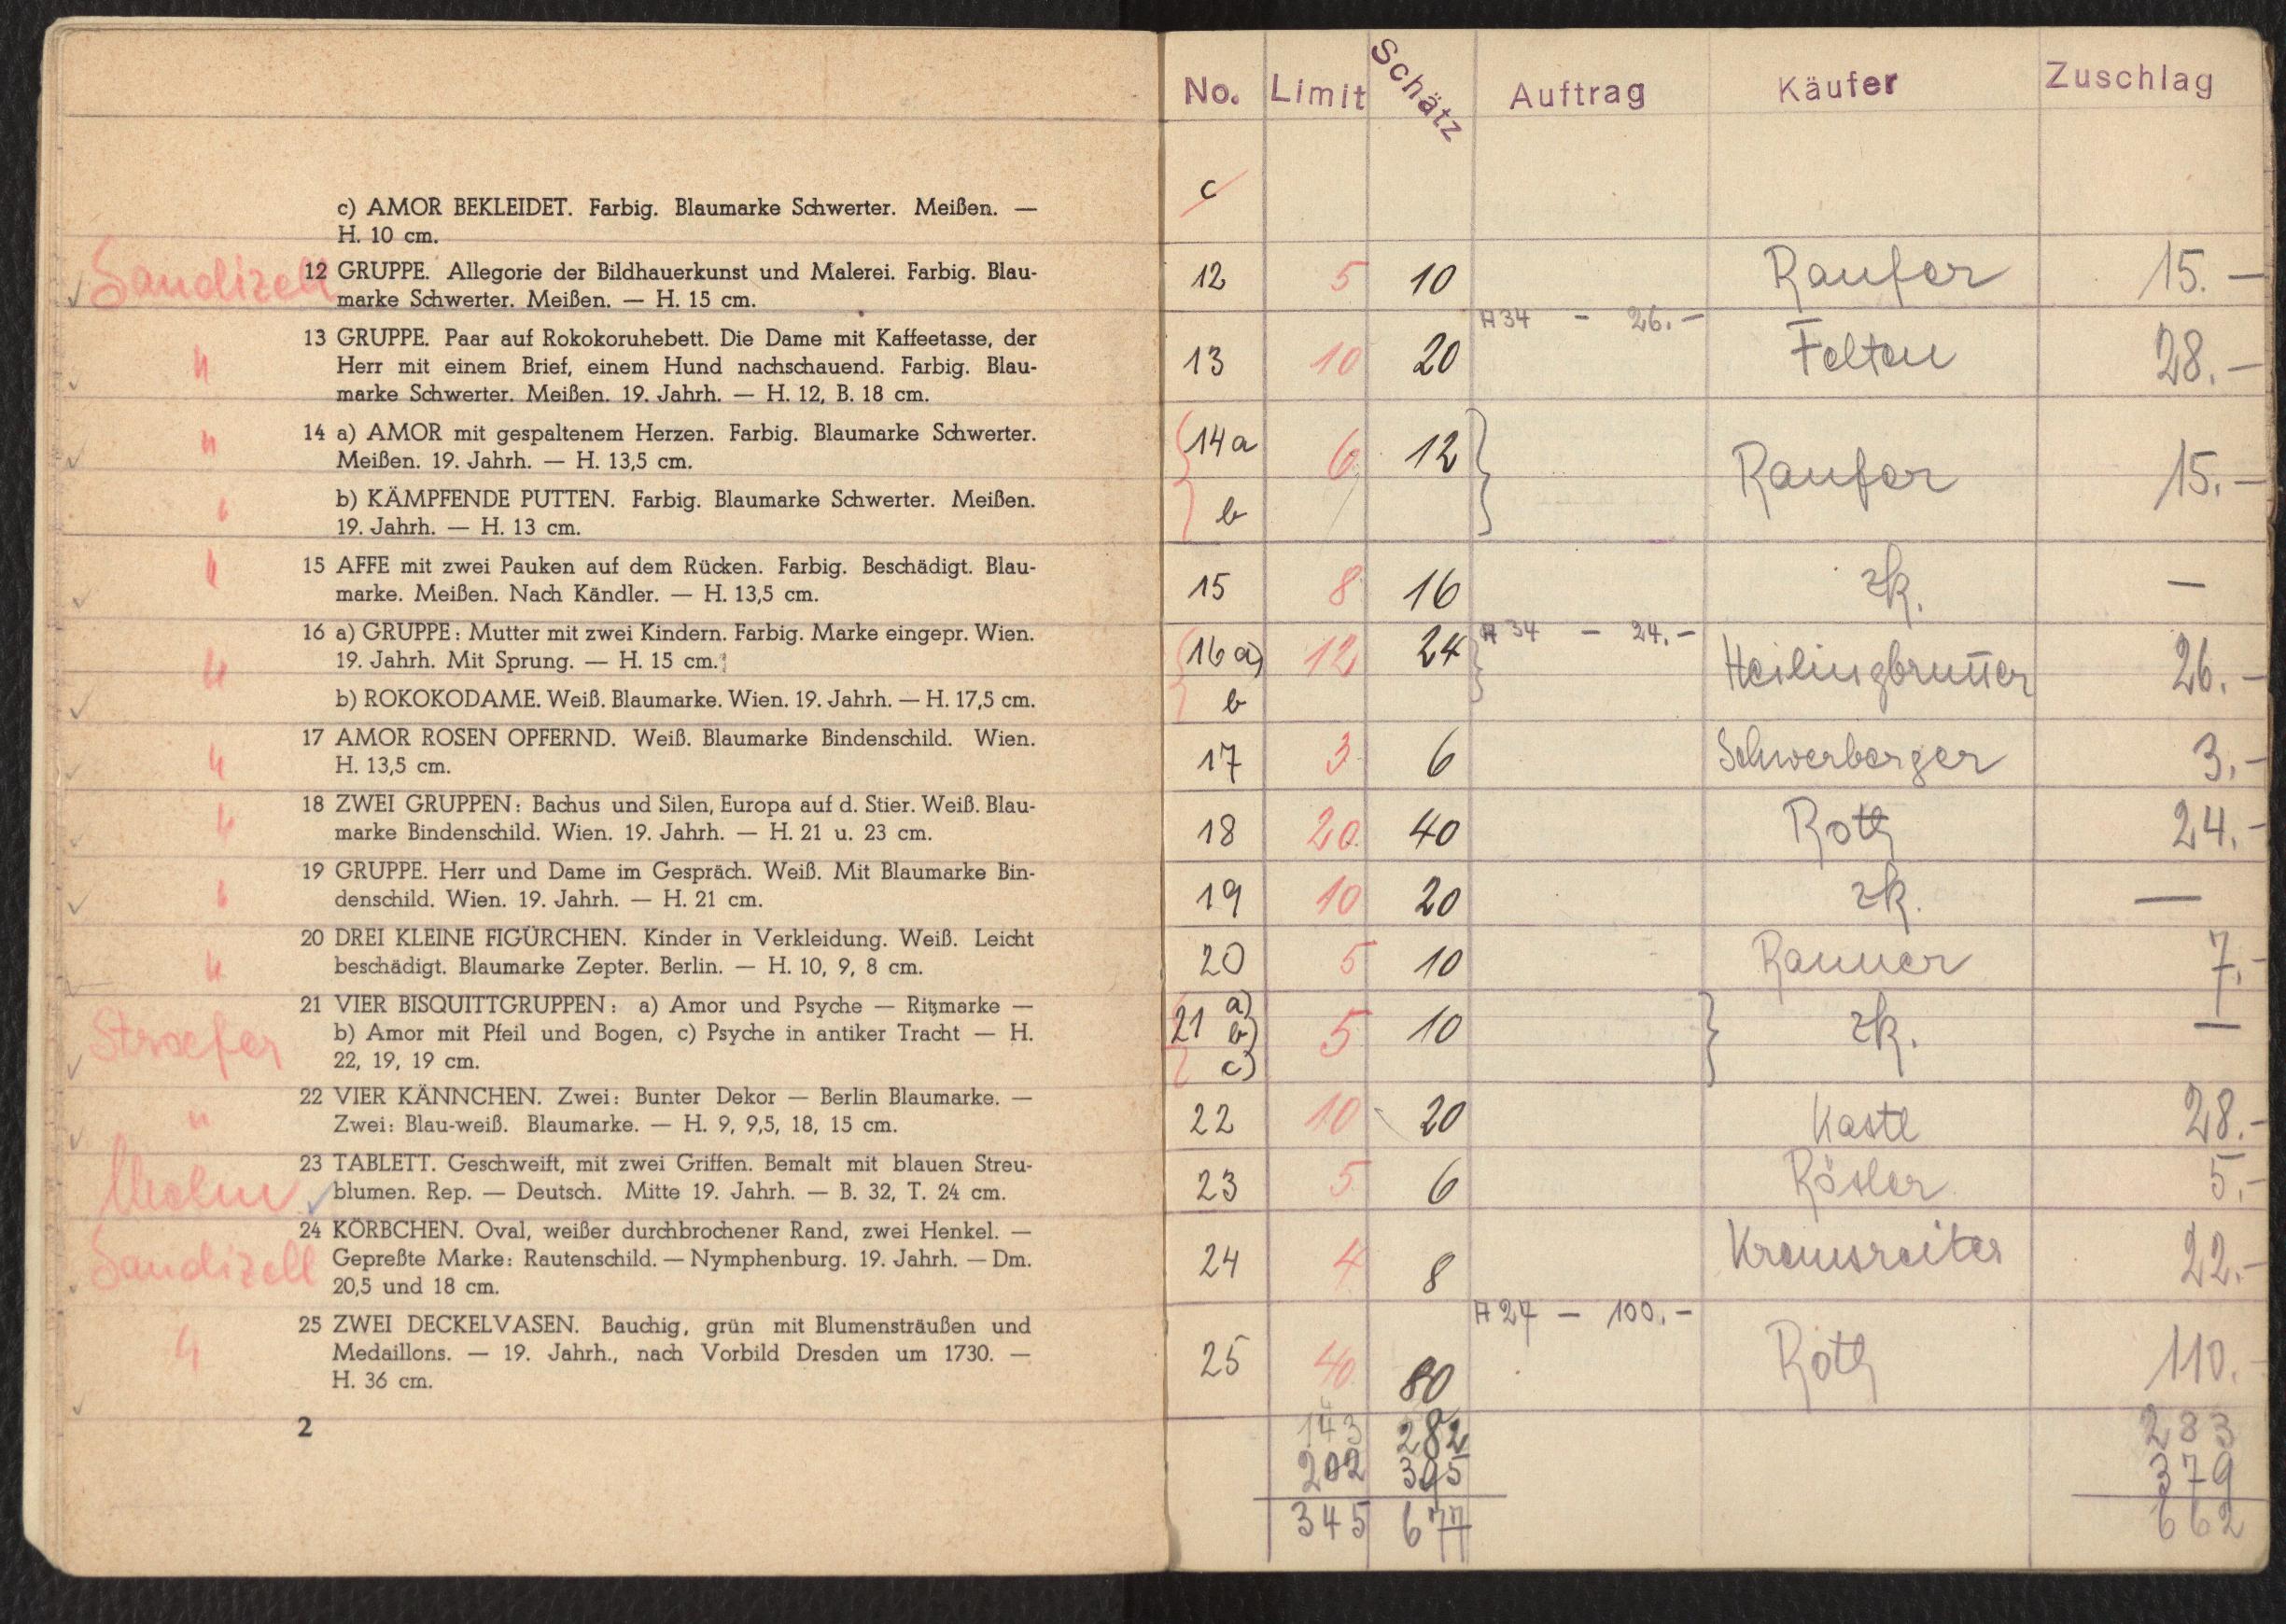 c) AMOR BEKLEIDET. Farbig. Blaumarke Schwerter. Meißen. —
H. 10 cm.
Sandizell
12 GRUPPE. Allegorie der Bildhauerkunst und Malerei. Farbig. Blau-
marke Schwerter. Meißen. — H. 15 cm.
13 GRUPPE. Paar auf Rokokoruhebett. Die Dame mit Kaffeetasse, der
" Herr mit einem Brief, einem Hund nachschauend. Farbig. Blau-
marke Schwerter. Meißen. 19. Jahrh. — H. 12, B. 18 cm.
" 14 a) AMOR mit gespaltenem Herzen. Farbig. Blaumarke Schwerter.
Meißen. 19. Jahrh. — H. 13,5 cm.
" b) KÄMPFENDE PUTTEN. Farbig. Blaumarke Schwerter. Meißen.
19. Jahrh. — H. 13 cm.
" 15 AFFE mit zwei Pauken auf dem Rücken. Farbig. Beschädigt. Blau-
marke. Meißen. Nach Kändler. — H. 13,5 cm.
16 a) GRUPPE: Mutter mit zwei Kindern. Farbig. Marke eingepr. Wien.
" 19. Jahrh. Mit Sprung. — H. 15 cm.
b) ROKOKODAME. Weiß. Blaumarke. Wien. 19. Jahrh. — H. 17,5 cm.
17 AMOR ROSEN OPFERND. Weiß. Blaumarke Bindenschild. Wien.
" H. 13,5 cm.
18 ZWEI GRUPPEN: Bachus und Silen, Europa auf d. Stier. Weiß. Blau-
" marke Bindenschild. Wien. 19. Jahrh. — H. 21 u. 23 cm.
19 GRUPPE. Herr und Dame im Gespräch. Weiß. Mit Blaumarke Bin-
" denschild. Wien. 19. Jahrh. — H. 21 cm.
20 DREI KLEINE FIGÜRCHEN. Kinder in Verkleidung. Weiß. Leicht
" beschädigt. Blaumarke Zepter. Berlin. — H. 10, 9, 8 cm.
21 VIER BISQUITTGRUPPEN: a) Amor und Psyche — Ritzmarke —
Stroefer b) Amor mit Pfeil und Bogen, c) Psyche in antiker Tracht — H.
22, 19, 19 cm.
22 VIER KÄNNCHEN. Zwei: Bunter Dekor — Berlin Blaumarke. —
" Zwei: Blau-weiß. Blaumarke. — H. 9, 9,5, 18, 15 cm.
23 TABLETT. Geschweift, mit zwei Griffen. Bemalt mit blauen Streu-
blumen. Rep. — Deutsch. Mitte 19. Jahrh. — B. 32, T. 24 cm.
24 KÖRBCHEN. Oval, weißer durchbrochener Rand, zwei Henkel. —
Sandizell Gepreßte Marke: Rautenschild. — Nymphenburg. 19. Jahrh. — Dm.
20,5 und 18 cm.
25 ZWEI DECKELVASEN. Bauchig, grün mit Blumensträußen und
" Medaillons. — 19. Jahrh., nach Vorbild Dresden um 1730. —
H. 36 cm.
2
No. Limit Schätz Auftrag Käufer Zuschlag
c
12 5 10 Raufer 15.—
A 34 — 26.—
13 10 20 Felten 28.—
14a 6 12 Raufer 15.—
b
15 8 16 zk. —
A 34 — 24.—
16 a) 12 24 Heilingbrunner 26.—
b
17 3 6 Schwerberger 3.—
18 20 40 Roth 24.—
19 10 20 zk. —
20 5 10 Ranner 7.—
21 a) b) c) 5 10 zk. —
22 10 20 Kastl 28.—
23 5 6 Rösler 5.—
24 4 8 Kreusreiter 22.—
A 27 — 100.—
25 40 80 Roth 110.—
143 282 283
202 395 379
345 677 662